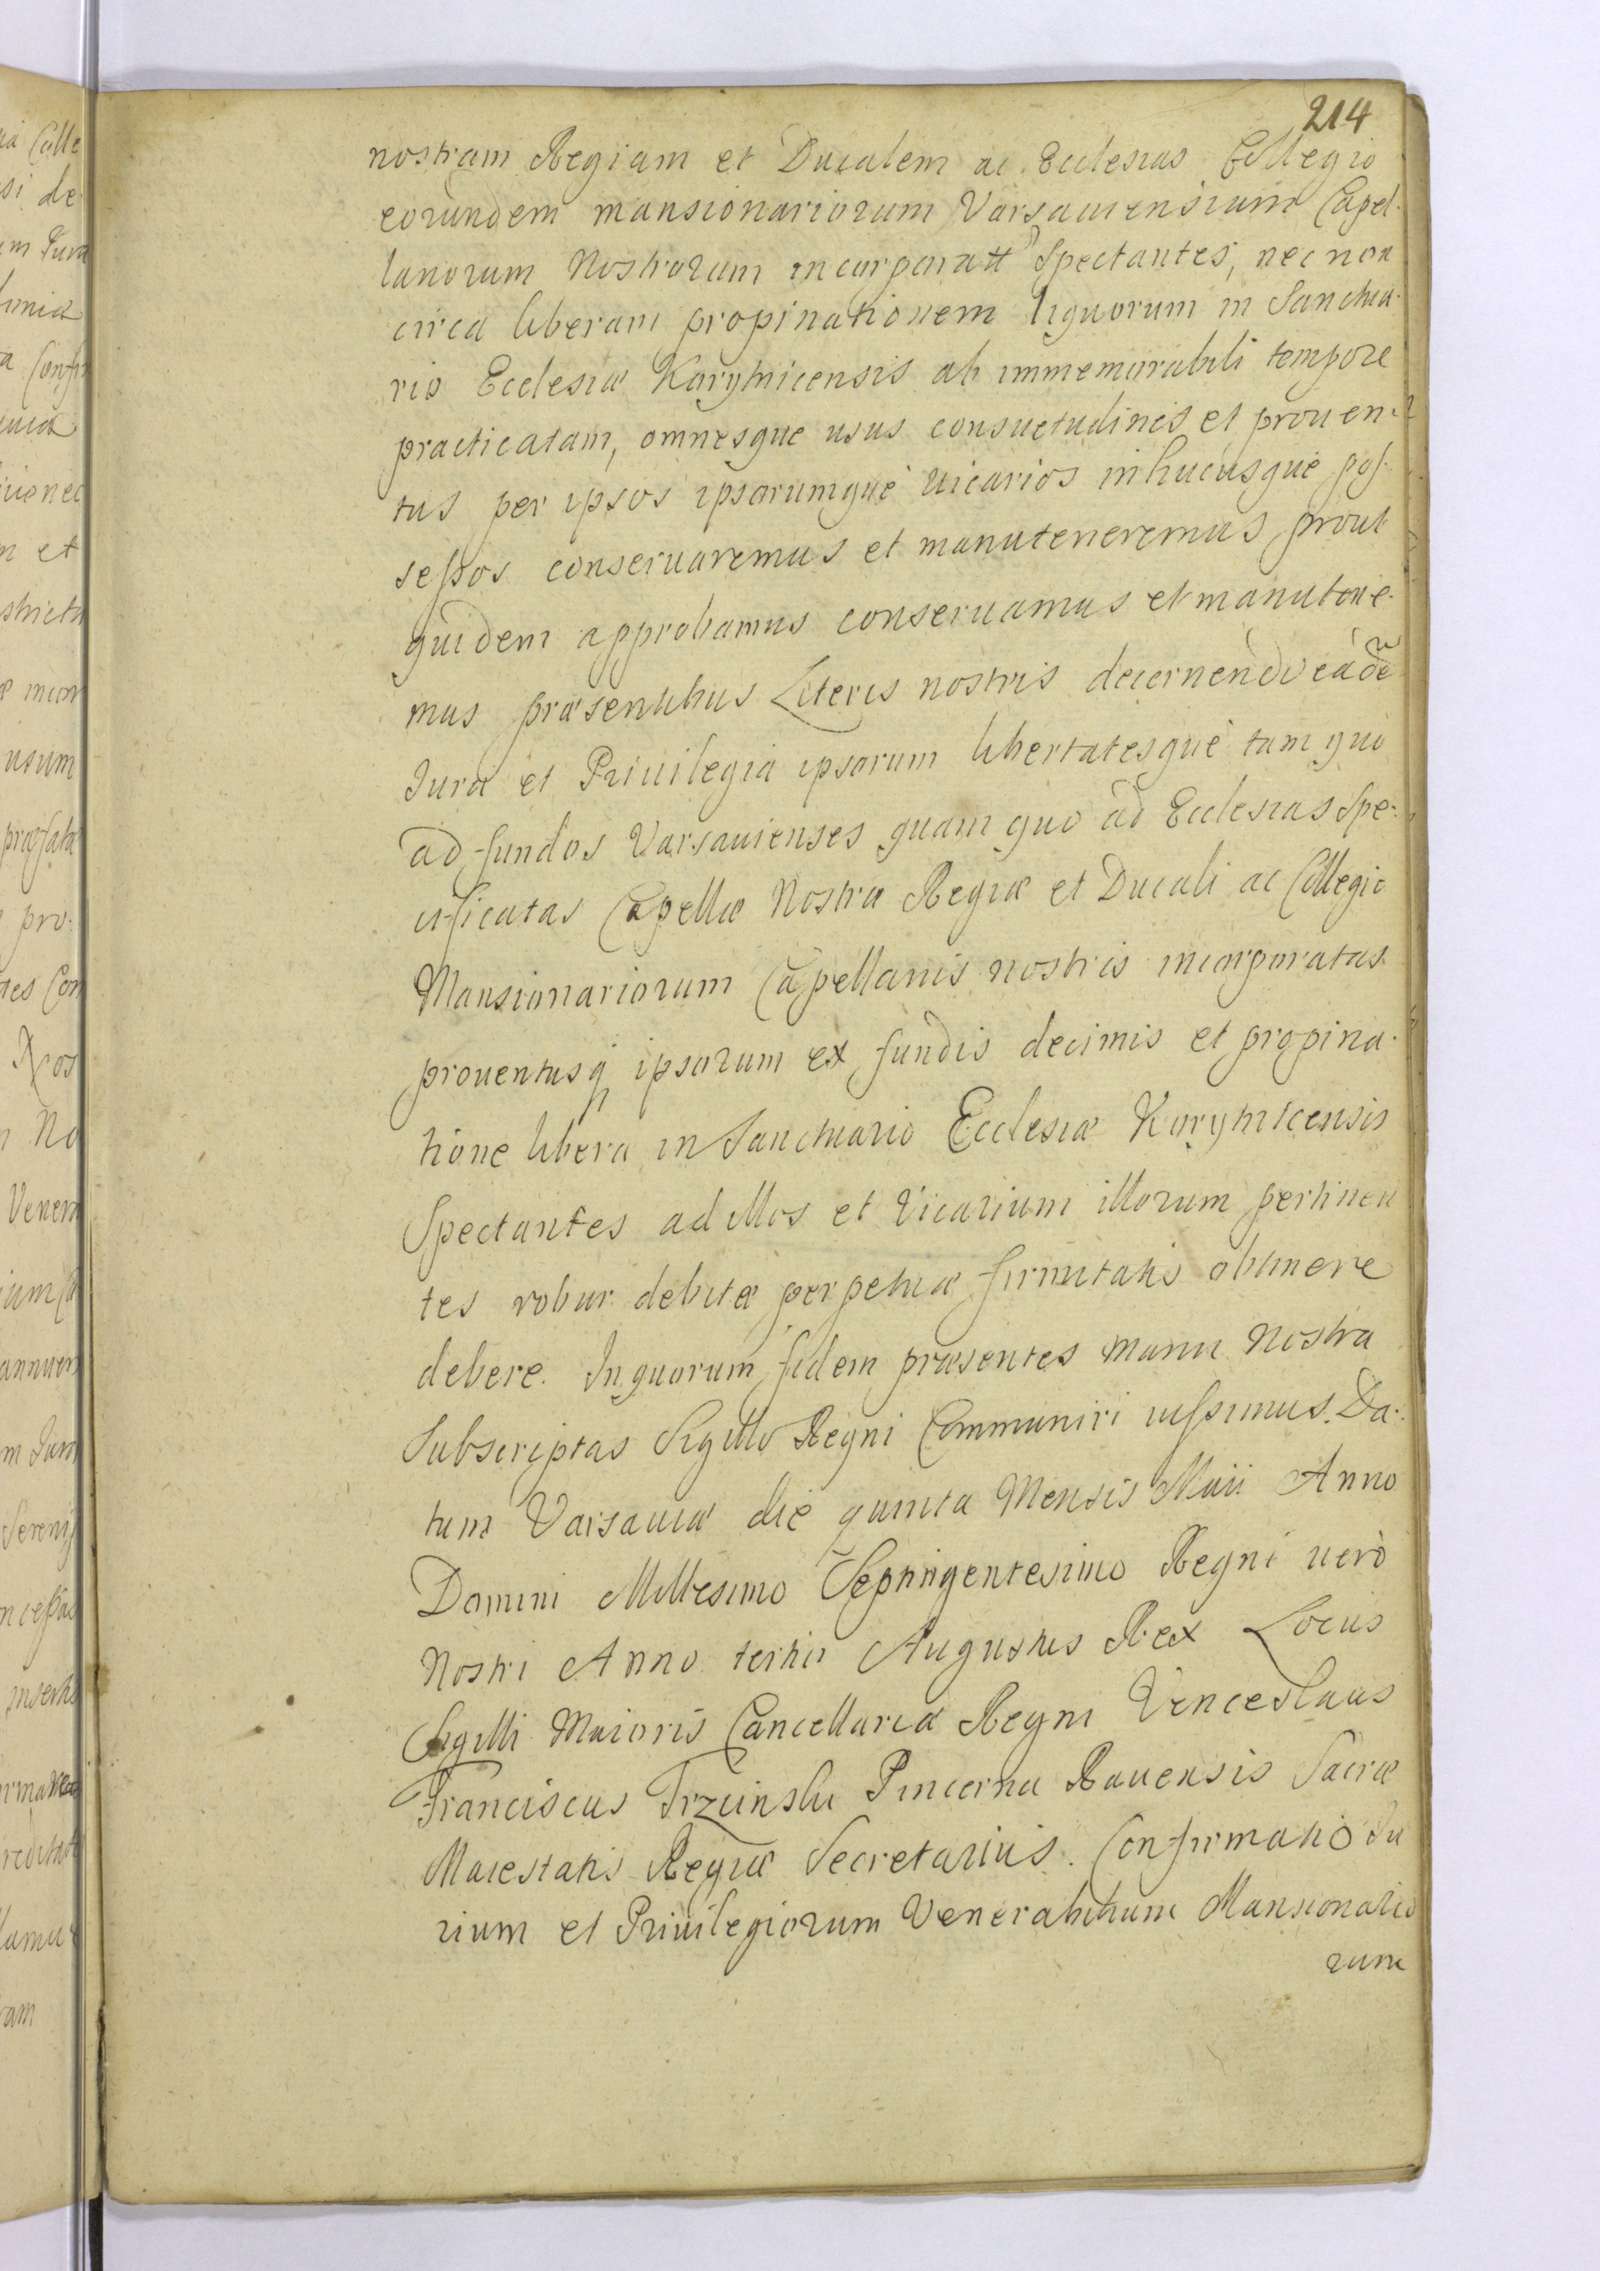 214
nostram Regiam et Ducalem ac Ecclesias Collegio
eorundem mansionariorum Varsauiensium Capel-
lanorum Nostrorum incorporatt Spectantes, nec non
circa liberam propinationem liquorum in Sanctua-
rio Ecclesiæ Korytnicensis ab immemorabili tempore
practicatam, omnesque usus consuetudines et prouen-
tus per ipsos ipsorumque uicarios in hucusque pos-
sessos conseruaremus et manuteneremus prout
quidem approbamus conseruamus et manutene-
mus præsentibus Literis nostris decernendo eadē
Iura et Priuilegia ipsorum libertatesque tam quo
ad fundos Varsauienses quam quo ad Ecclesias Spe-
cificatas Capellæ Nostræ Regiæ et Ducali ac Collegio
Mansionariorum Capellanis nostris incorporatas
prouentusq ipsorum ex fundis decimis et propina-
tione libera in Sanctuario Ecclesiæ Korytnicensis
Spectantes ad illos et Vicarium illorum pertinen
tes robur debitæ perpetuæ firmitatis obtinere
debere. In quorum fidem præsentes manu Nostra
Subscriptas Sigillo Regni Communiri iussimus. Da-
tum Varsauiæ die quinta Mensis Maii Anno
Domini Millesimo Septingentesimo Regni uero
Nostri Anno tertio Augustus Rex Locus
Sigilli Maioris Cancellariæ Regni Venceslaus
Franciscus Trzcinski Pincerna Rauensis Sacræ
Maiestatis Regiæ Secretarius. Confirmatio Iu
rium et Priuilegiorum Venerabilium Mansionario
rum